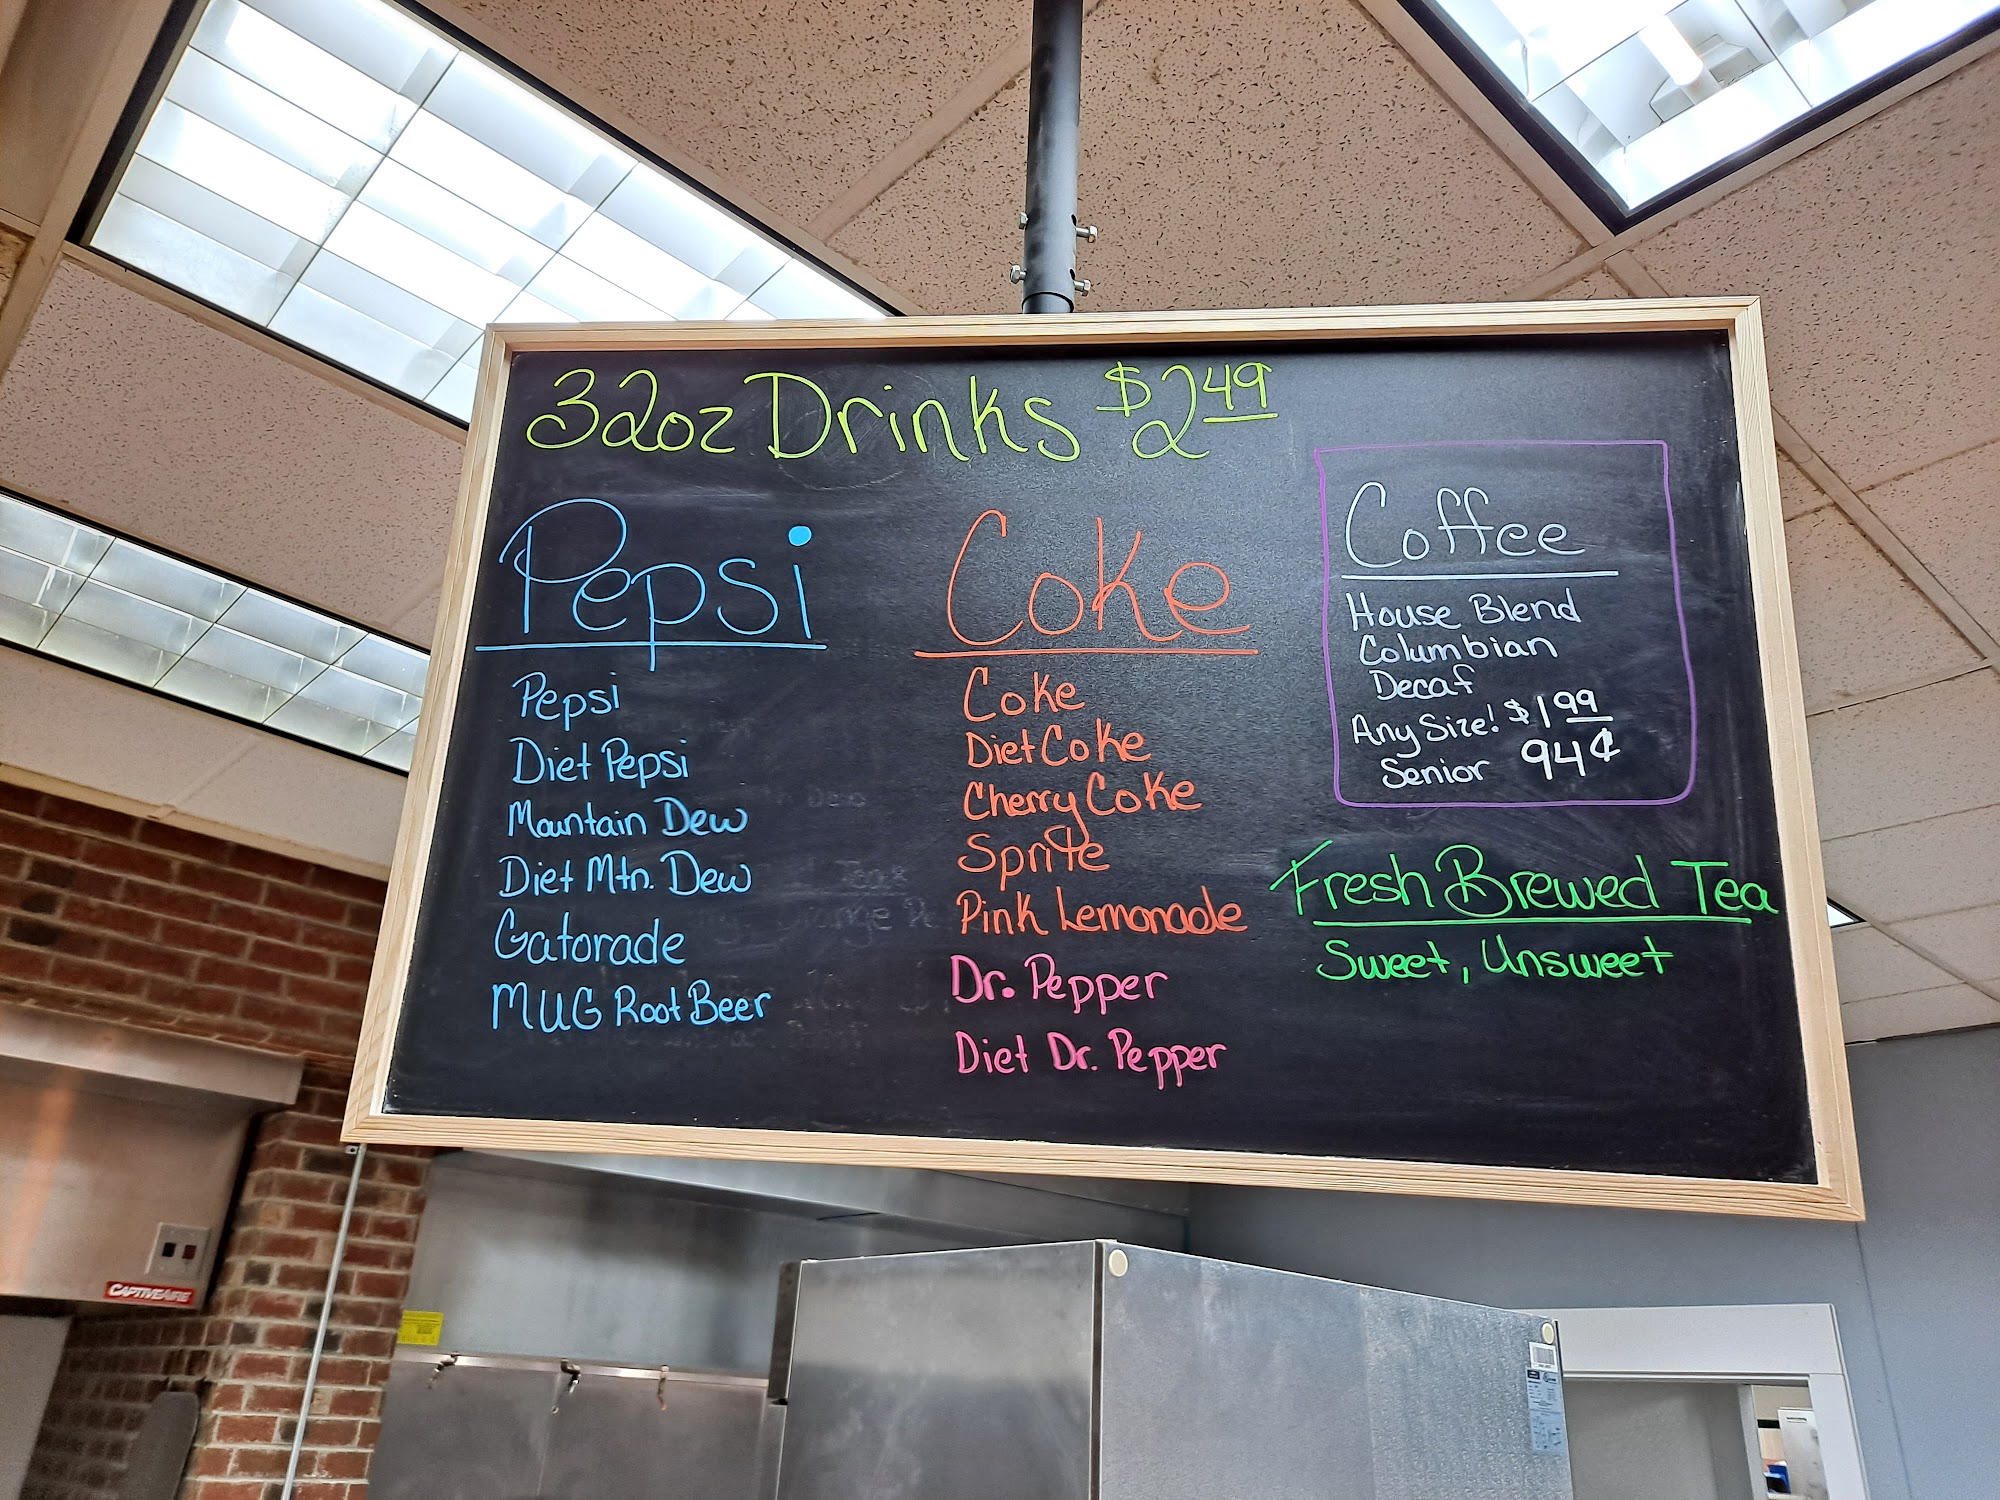 32oz Drinks $2.49
Pepsi
Pepsi
Diet Pepsi
Mountain Dew
Diet Mtn. Dew
Gatorade
MUG Root Beer
Coke
Coke
Diet Coke
Cherry Coke
Sprite
Pink Lemonade
Dr. Pepper
Diet Dr. Pepper
Coffee
House Blend
Columbian
Decaf
Any Size! $1.99
Senior 94¢
Fresh Brewed Tea
Sweet, Unsweet
CAPTIVEAIRE